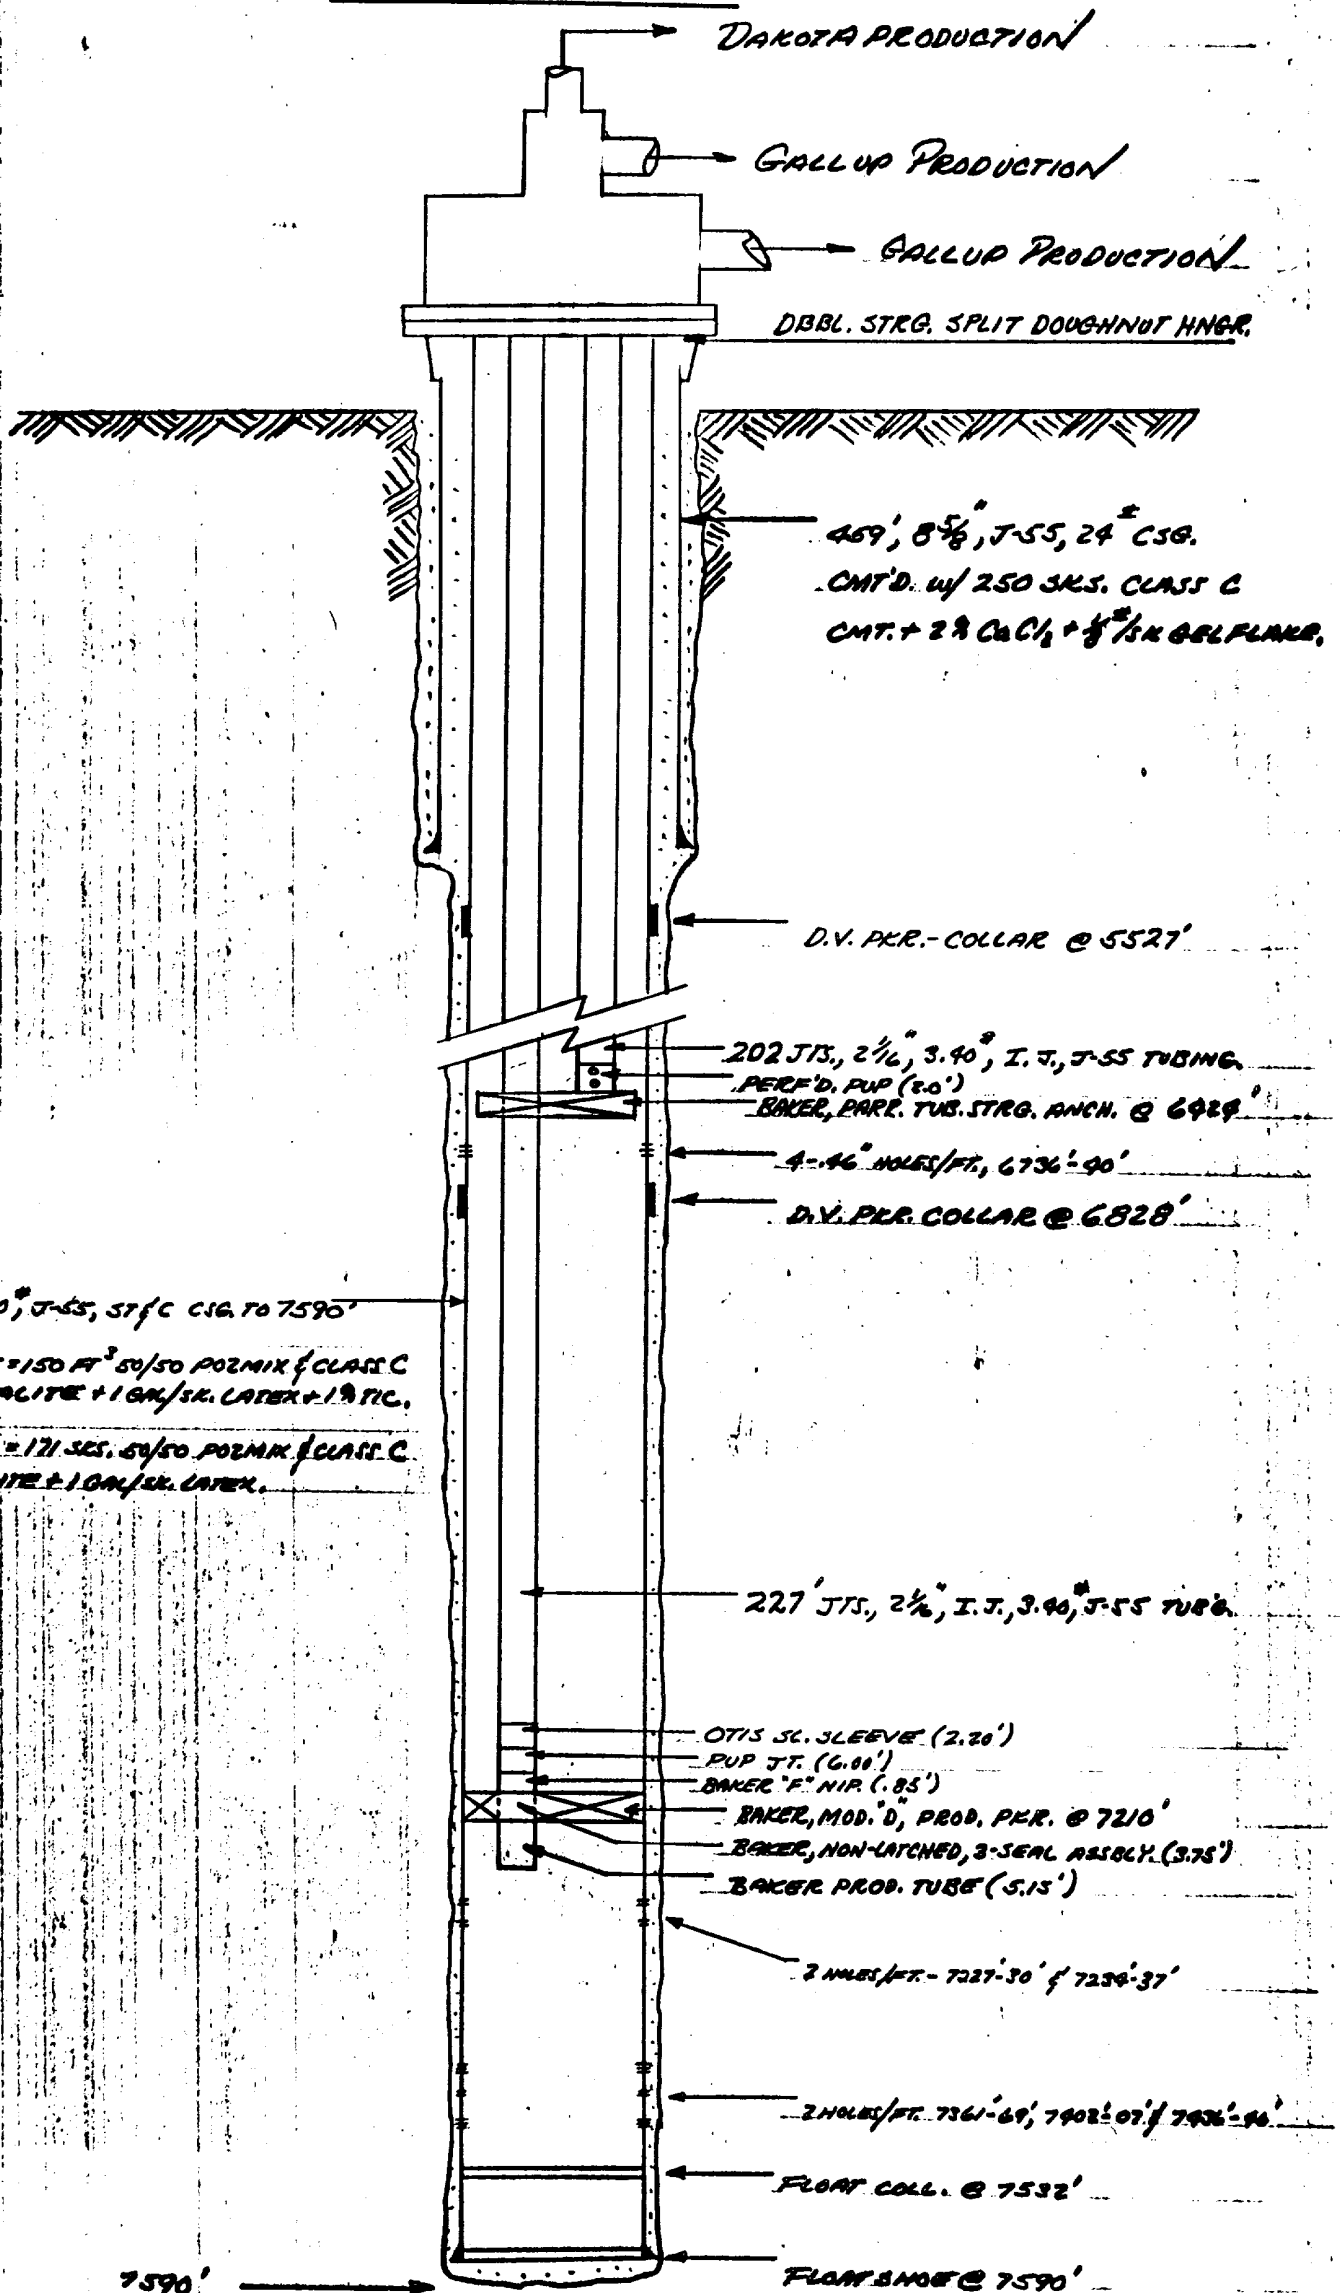 DAKOTA PRODUCTION
GALLUP PRODUCTION
GALLUP PRODUCTION
DBBL. STRG. SPLIT DOUGHNUT HNGR.
469', 8 5/8", J-55, 24# CSG.
CMT'D. w/ 250 SKS. CLASS C
CMT. + 2% CaCl2 + #/SK GELFLAKE.
D.V. PKR.-COLLAR @ 5527'
202 JTS., 2 1/16", 3.40#, I.J., J-55 TUBING.
PERF'D. PUP (2.0')
BAKER, PARR. TUB. STRG. ANCH. @ 6424'
4-.46" HOLES/FT., 6736'-40'
D.V. PKR. COLLAR @ 6828'
0,# J-55, ST&C CSG. TO 7590'
=150 FT3 50/50 POZMIX & CLASS C
ALITE + 1 GAL/SK. LATEX + 1% TIC.
=171 SKS. 50/50 POZMIX & CLASS C
ITE + 1 GAL/SK. LATEX.
227' JTS., 2 1/16", I.J., 3.40,# J-55 TUB'G.
OTIS SL. SLEEVE (2.20')
PUP JT. (6.00')
BAKER "F" NIP. (.85')
BAKER, MOD. "D", PROD. PKR. @ 7210'
BAKER, NON-LATCHED, 3-SEAL ASSBLY. (3.75')
BAKER PROD. TUBE (5.15')
2 HOLES/FT. - 7227'-30' & 7234'-37'
2 HOLES/FT. 7361'-69', 7402'-07' & 7436'-46'
FLOAT COLL. @ 7532'
7590'
FLOAT SHOE @ 7590'